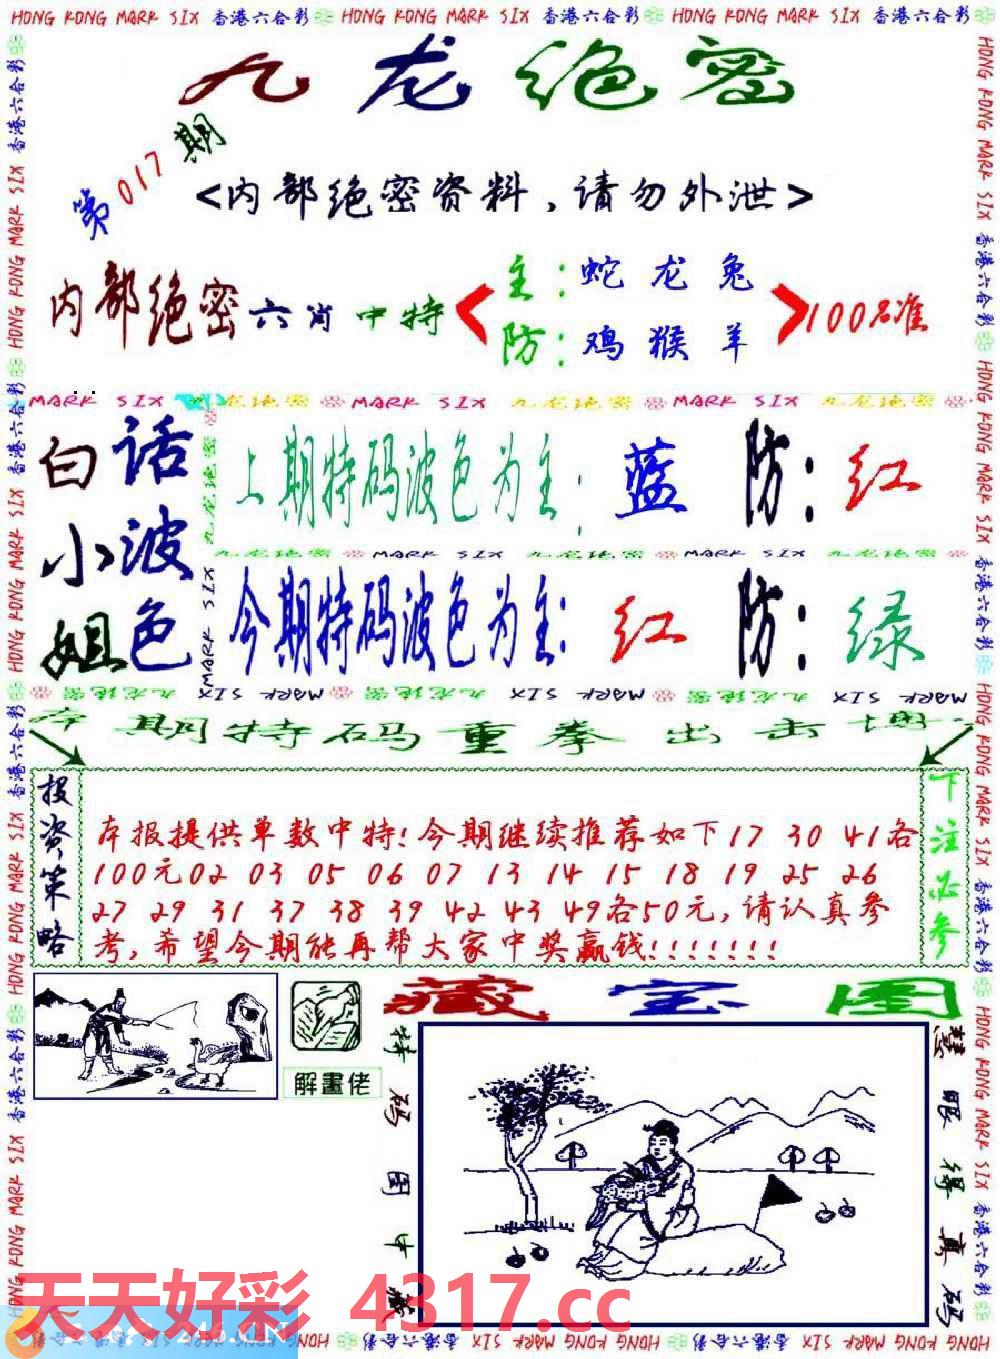 HONG KONG MARK SIX 香港六合彩 HONG KONG MARK SIX 香港六合彩 HONG KONG MARK SIX 香港六合彩
九龙绝密
第017期
<内部绝密资料,请勿外泄>
内部绝密六肖中特
主:蛇龙兔
防:鸡猴羊
100%准
MARK SIX 九龙绝密 MARK SIX 九龙绝密 MARK SIX 九龙绝密
白小姐
话波色
上期特码波色为主:蓝 防:红
九龙绝密 MARK SIX 九龙绝密 MARK SIX 九龙绝密
今期特码波色为主:红 防:绿
本期特码重拳出击
投资策略
本报提供单数中特!今期继续推荐如下17 30 41各
100元02 03 05 06 07 13 14 15 18 19 25 26
27 29 31 37 38 39 42 43 49各50元,请认真参
考,希望今期能再帮大家中奖赢钱!!!!!!!
下注必参
解畫佬
藏宝图
特码图中藏
慧眼得真码
天天好彩 4317.cc
246.CLN